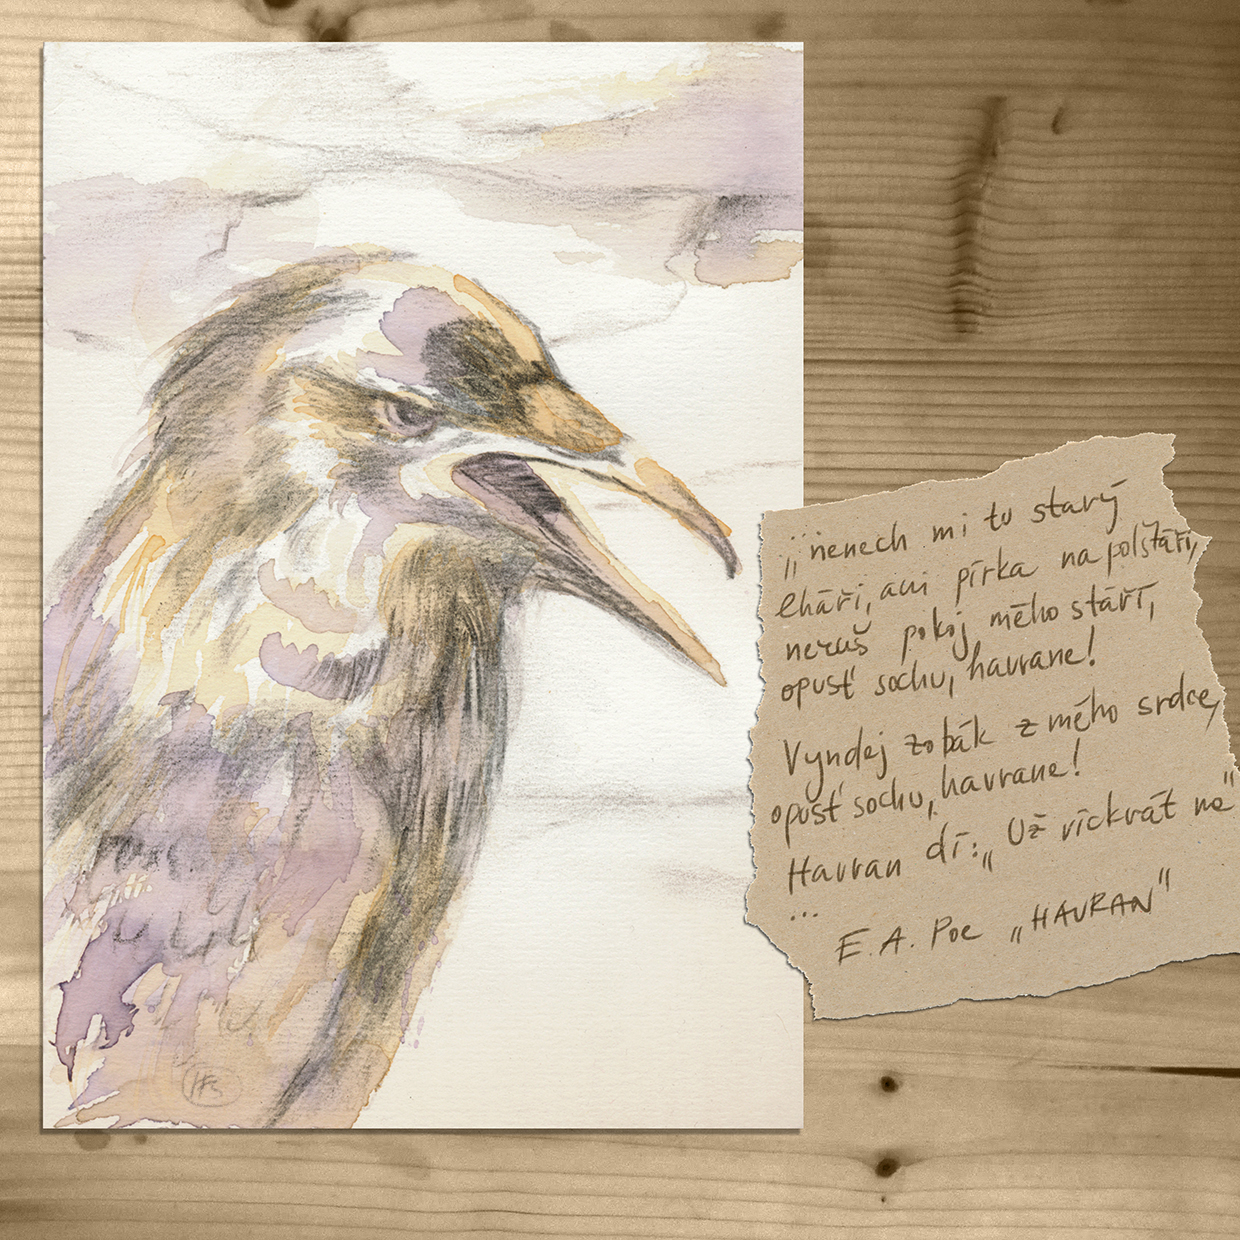 „nenech mi tu starý
lháři, ani pírka na polštáři,
neruš pokoj mého stáří,
opusť sochu, havrane!
Vyndej zobák z mého srdce,
opusť sochu, havrane!
Havran dí: „Už víckrát ne"
...
E. A. Poe „HAVRAN"